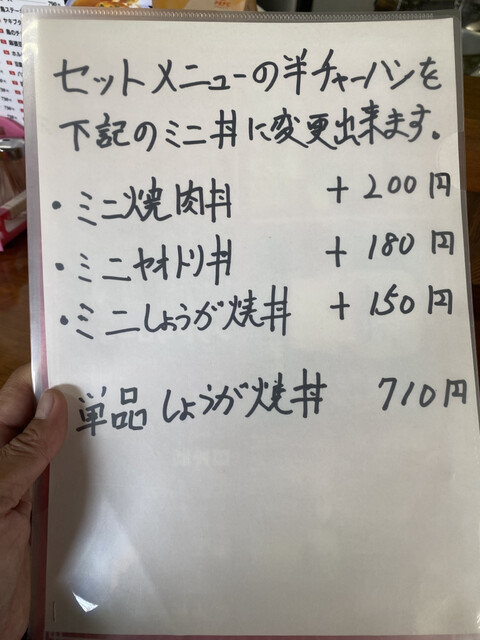 セットメニューの半チャーハンを
下記のミニ丼に変更出来ます。
・ミニ焼肉丼 +200円
・ミニヤオトリ丼 +180円
・ミニしょうが焼丼 +150円
単品しょうが焼丼 710円